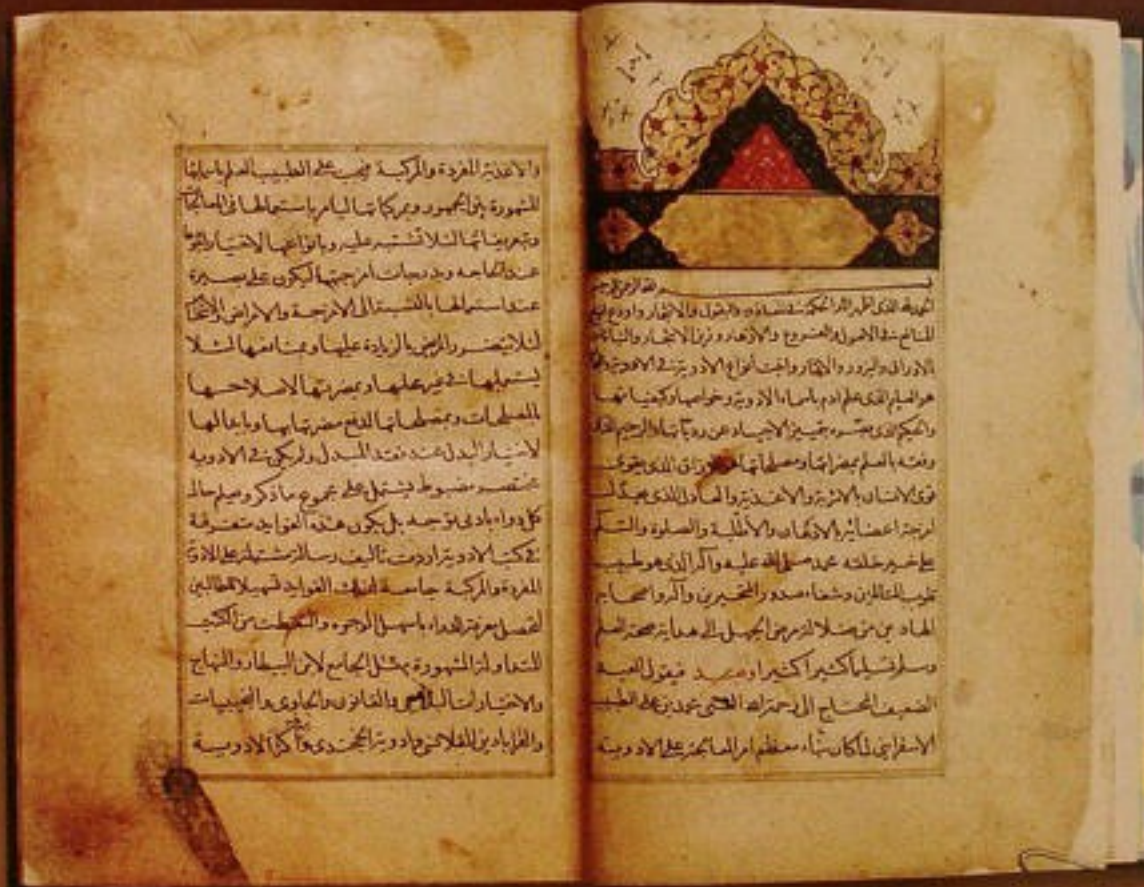 بسم الله الرحمن الرحيم
الحمد لله الذى اظهر الحكمة فى والبقول والاثمار واودع
المنافع فى الاصول والفروع والازهار وزين الاشجار والنبات
بالاوراق والبزور والاثمار انواع الادوية فى
هو العليم الذى علم ادم باسماء الادوية وخواصها وكيفياتها
والحكيم الذى عن
وفقه بالعلم بمضراتها ومصلحاتها الذى يقوى
قوى الانسان بالاشربة والاغذية والعادل الذى يعدل
امزجة اعضائه بالادهان والأطلية والصلوة والسلم
على خير خلقه محمد صلى الله عليه وآله الذى هو طبيب
قلوب المتالمين وشفاء صدور المتحيرين وآله واصحابه
الهادين من ضلالة مرض الجهل الى هداية صحة العلم
وسلم تسليما كثيرا كثيرا وبعد فيقول العبد
الضعيف المحتاج الى رحمة الله الغنى محمد بن على الطبيب
الاسفراينى لما كان بناء معظم امر المعالجة على الادوية
والاغذية المفردة والمركبة فيجب على الطبيب العلم باسمائها
المشهورة بين الجمهور باستعمالها فى المعالجات
لئلا تشتبه عليه وبانواعها لاختيار
عند الحاجة وبدرجات امزجتها ليكون على بصيرة
عند استعمالها بالنسبة الى الامزجة والامراض
لئلا يتضرر المرضى بالزيادة عليها وبمنافعها لئلا
يستعملها فى غير محلها وبمضرتها لاصلاحها
بالمصلحات وبمصلحاتها لدفع مضرتها بها وبابدالها
لاختيار البدل عند فقد المبدل ولم يكن فى الادوية
مختصر مضبوط يشتمل على مجموع ما ذكر ويعلم حال
كل دواء بادنى توجه بل يكون هذه الفوايد متفرقة
فى كتب الادوية اردت تاليف رسالة مشتملة على الادوية
المفردة والمركبة جامعة لتلك الفوايد تسهيلا للطالبين
لتحصل معرفة الدواء باسهل الوجوه والتقطت من الكتب
المتداولة المشهورة مثل الجامع لابن البيطار والمنهاج
والاختيارات البديعى والقانون والحاوى والنجيبيات
والقرابادين القلانسى وادوية الادوية